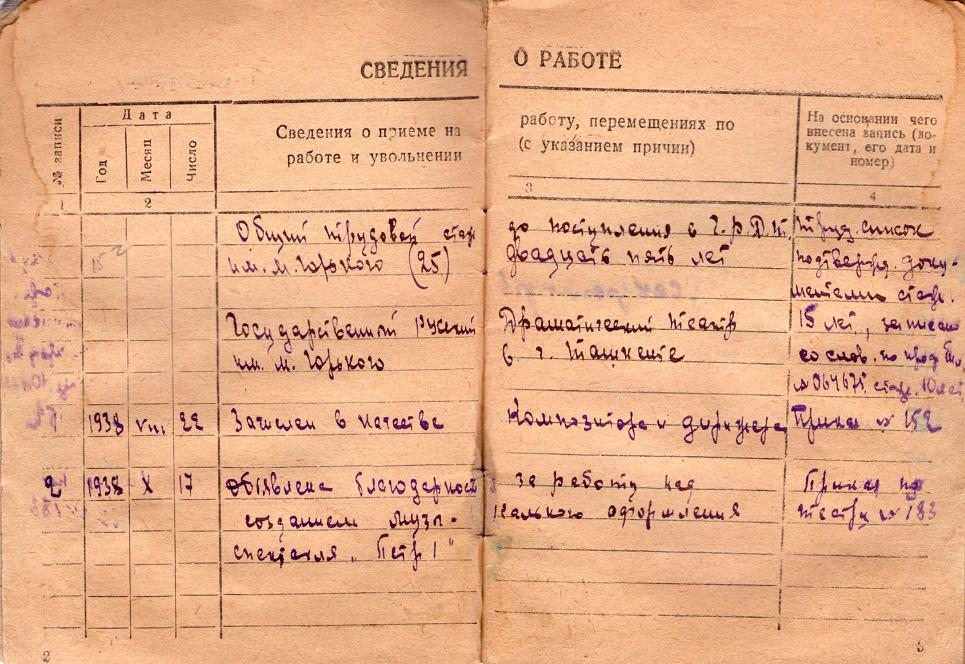 СВЕДЕНИЯ О РАБОТЕ
№ записи
Дата
Год
Месяц
Число
Сведения о приеме на работу, перемещениях по
работе и увольнении (с указанием причин)
На основании чего
внесена запись (до-
кумент, его дата и
номер)
1 2 3 4
Общий трудовой стаж до поступления в Г.Р.Д.Т. Труд. список
им. М. Горького (25) двадцать пять лет подтвержд. доку-
ментами стаж.
Государственный Русский Драматический театр 15 лет, записано
им. М. Горького в г. Ташкенте со слов. по проф. бил.
№ 064675 стаж. 10 лет
1 1938 VIII 22 Зачислен в качестве композитора и дирижера Приказ № 152
2 1938 X 17 Объявлена благодарность за работу над Приказ по
созданием музыкального оформления театру № 183
спектакля „Петр I"
2 3